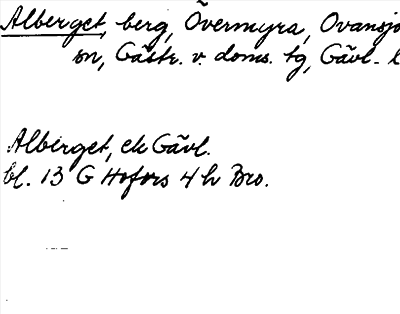 Alberget, berg, Övermyra, Ovansjö
sn, Gästr. v. doms. tg, Gävl. l
Alberget, ek Gävl.
bl. 13 G Hofors 4 h Bro.